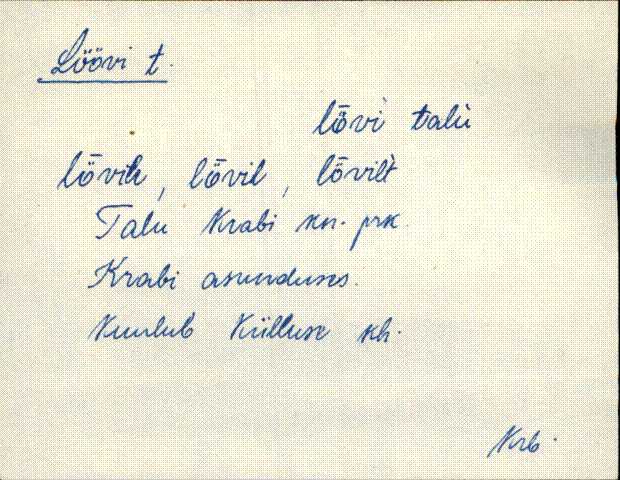 Löövi t.
lȫvi talu
lȫvile, lȫvil, lȫvilt
Talu Krabi kn. prk.
Krabi asunduses.
Kuulub Külluse kh.
Krb.